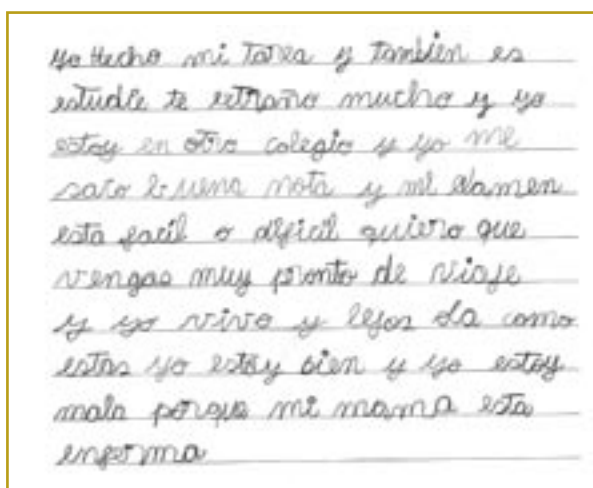 yo Hecho mi Tarea y Tambien es
estudie te retraño mucho y yo
estoy en otro colegio y yo me
saco buena nota y mi examen
esta facil o dificil quiero que
vengas muy pronto de viaje
y yo vivo y lejos como
estas yo estoy bien y yo estoy
mala porque mi mama esta
enferma